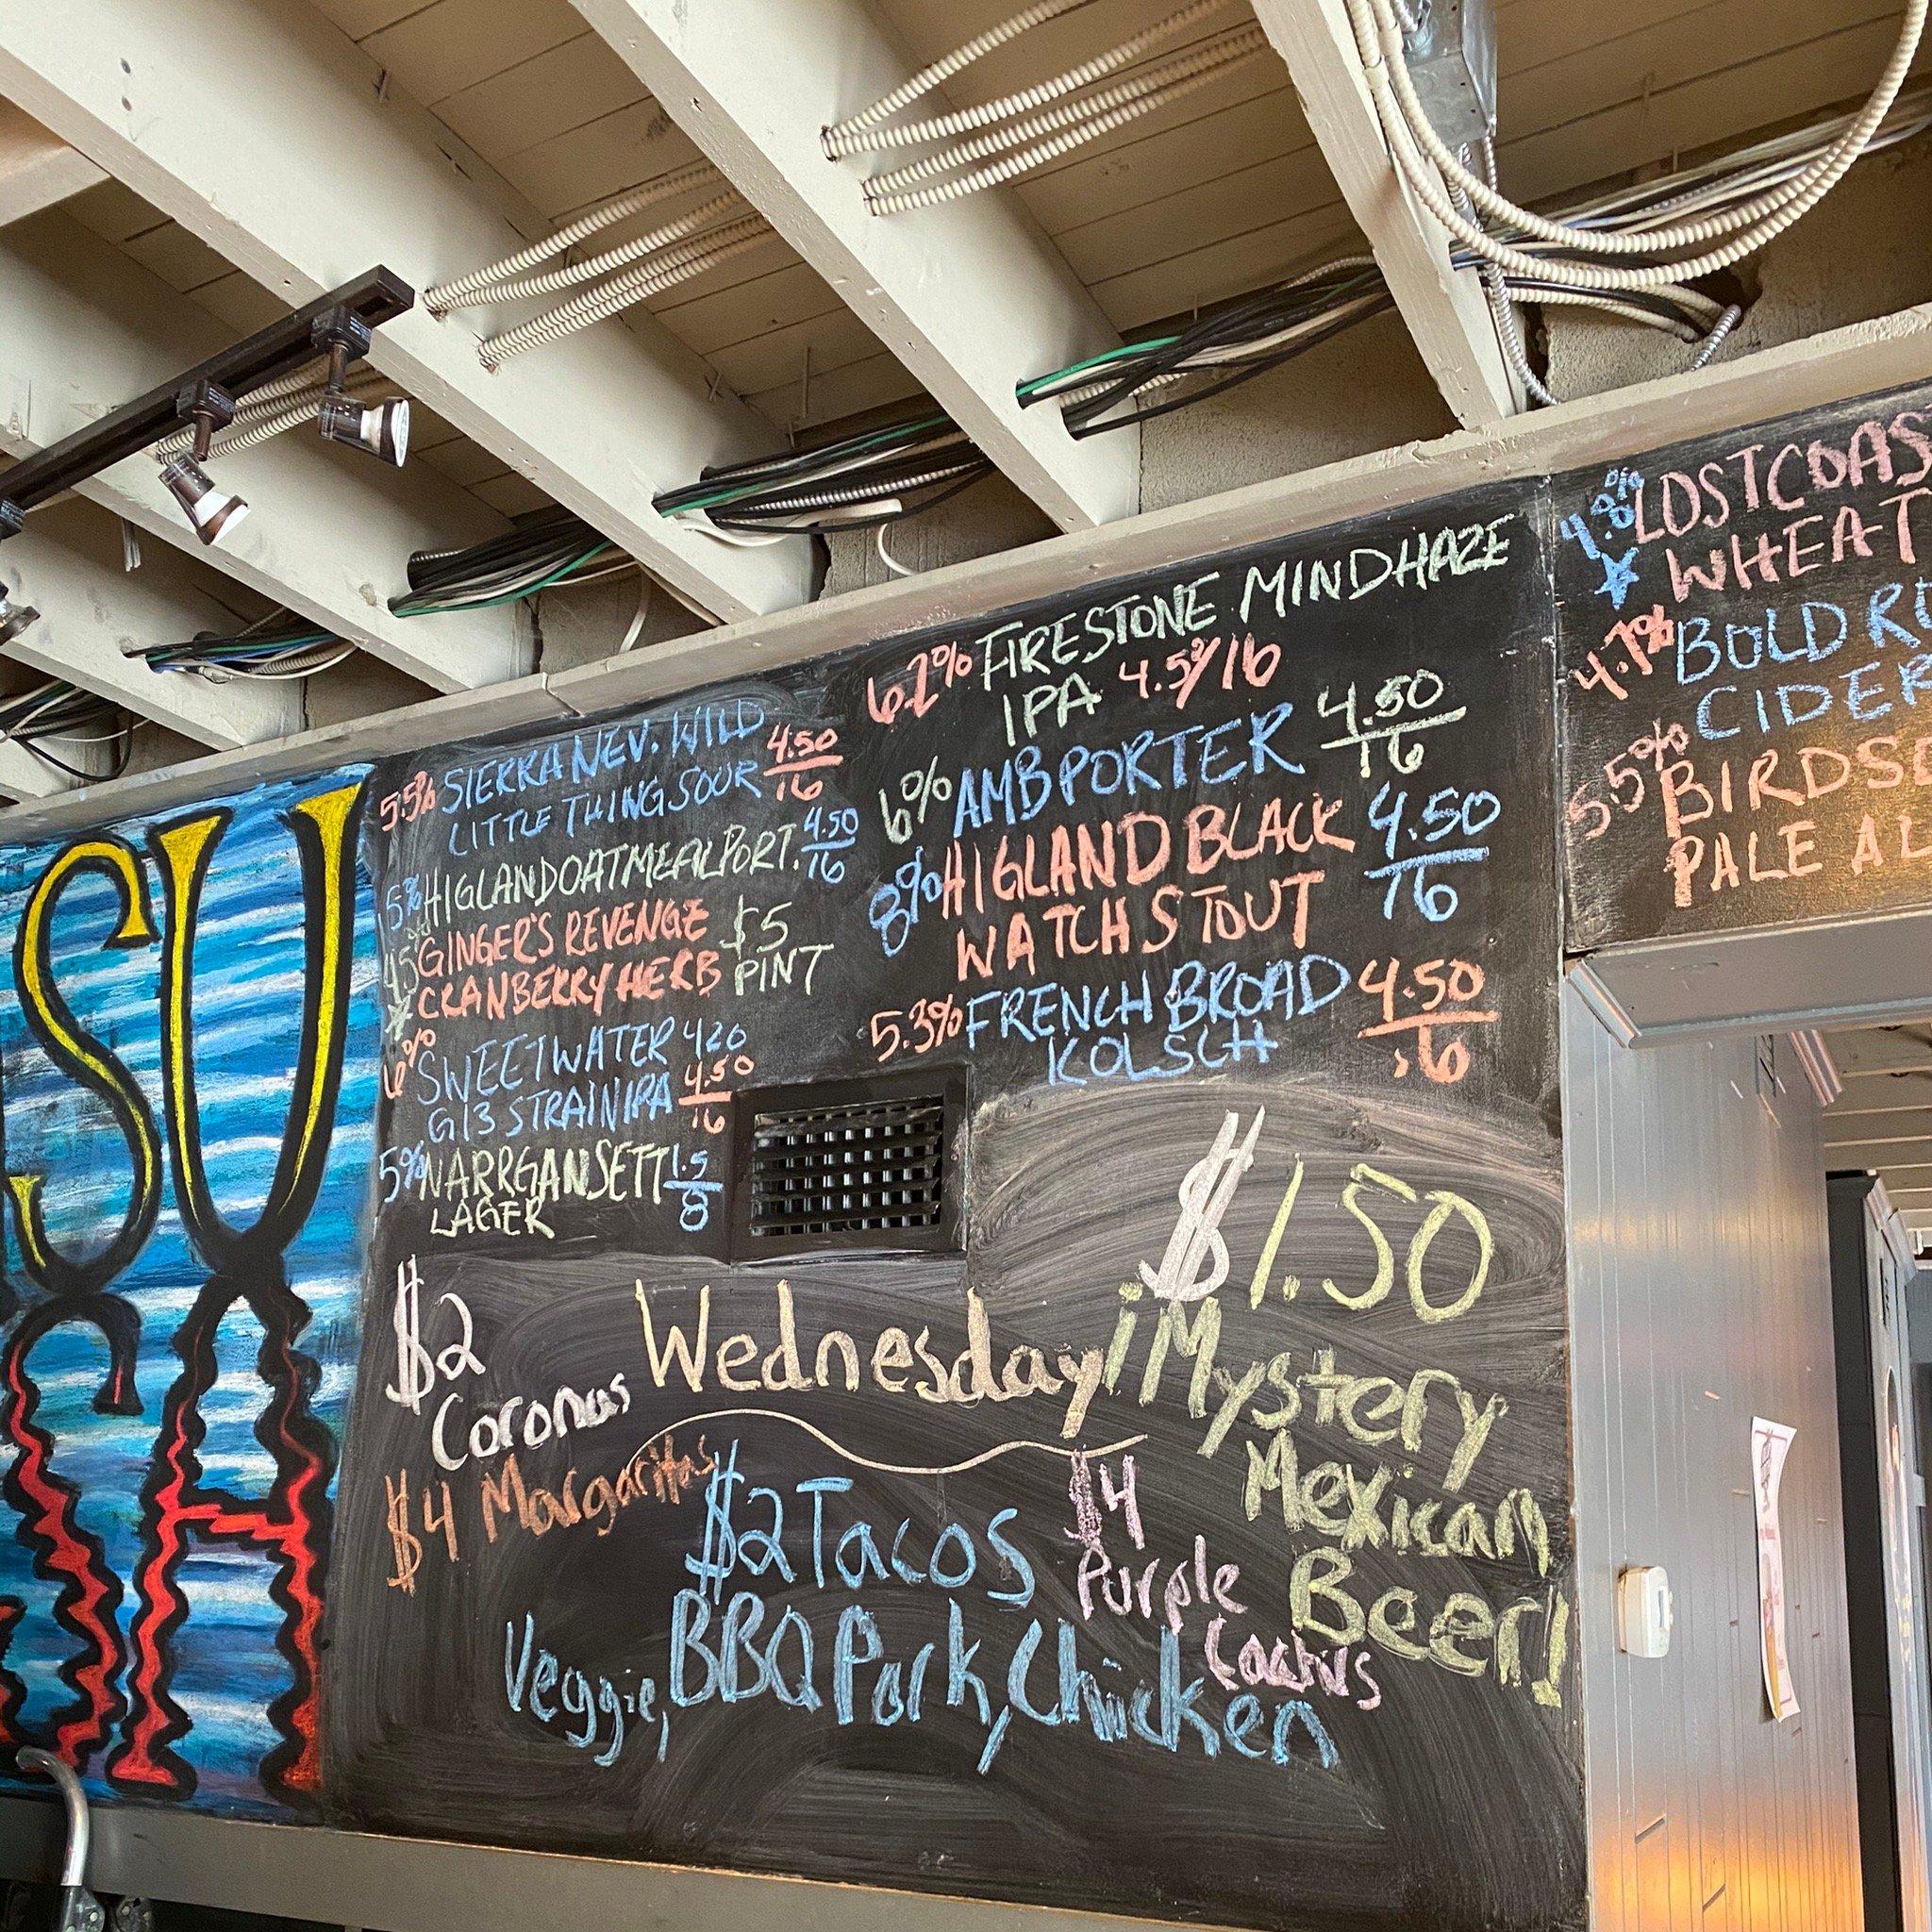 SU
CH
5.5% SIERRA NEV. WILD 4.50
LITTLE THING SOUR 16
5% HIGLAND OATMEAL PORT. 4.50
16
4.5% GINGER'S REVENGE $5
CRANBERRY HERB PINT
6% SWEETWATER 420
G13 STRAIN IPA 4.50
16
5% NARRGANSETT 1.5
LAGER 8
6.2% FIRESTONE MINDHAZE
IPA 4.50/16
6% AMB PORTER 4.50
16
8% HIGLAND BLACK 4.50
WATCH STOUT 16
5.3% FRENCH BROAD 4.50
KOLSCH 16
4.9% LOSTCOAS
WHEAT
4.7% BOLD R
CIDER
5.5% BIRDS
PALE AL
$2
Coronas
$4 Margaritas
Wednesday
$2 Tacos
Veggie, BBQ Pork, Chicken
$4
Purple
Cactus
$1.50
¡Mystery
Mexican
Beer!